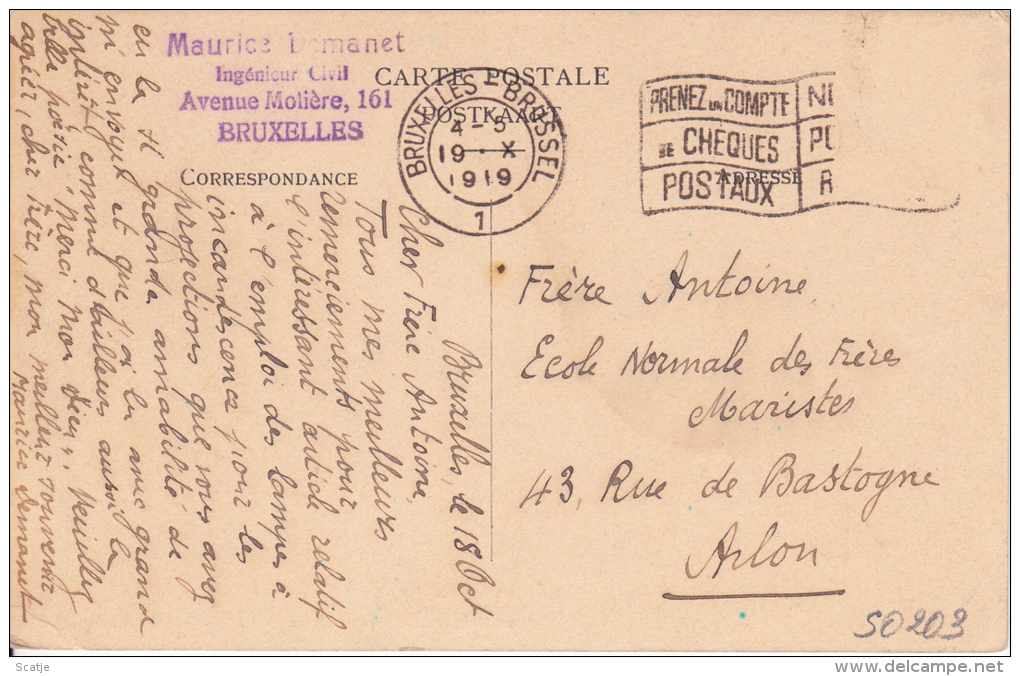 Maurice Demanet
Ingénieur Civil
Avenue Molière, 161
BRUXELLES
CARTE POSTALE
POSTKAART
CORRESPONDANCE
ADRESSE
BRUXELLES - BRUSSEL
4-5
19 X
1919
1
PRENEZ UN COMPTE
DE CHEQUES
POSTAUX
Bruxelles, le 18 Oct
Cher Frère Antoine,
Tous mes meilleurs
remerciements pour
l'intéressant article relatif
à l'emploi des lampes à
incandescence pour les
projections que vous avez
eu la si grande amabilité de
m'envoyer et que j'ai lu avec grand
intérêt comme d'ailleurs aussi la
belle poésie "Merci mon Dieu". Veuillez
agréer, cher frère, mon meilleur souvenir
Maurice Demanet
Frère Antoine
Ecole Normale des Frères
Maristes
43, Rue de Bastogne
Arlon
S0203
Scatje
www.delcampe.net